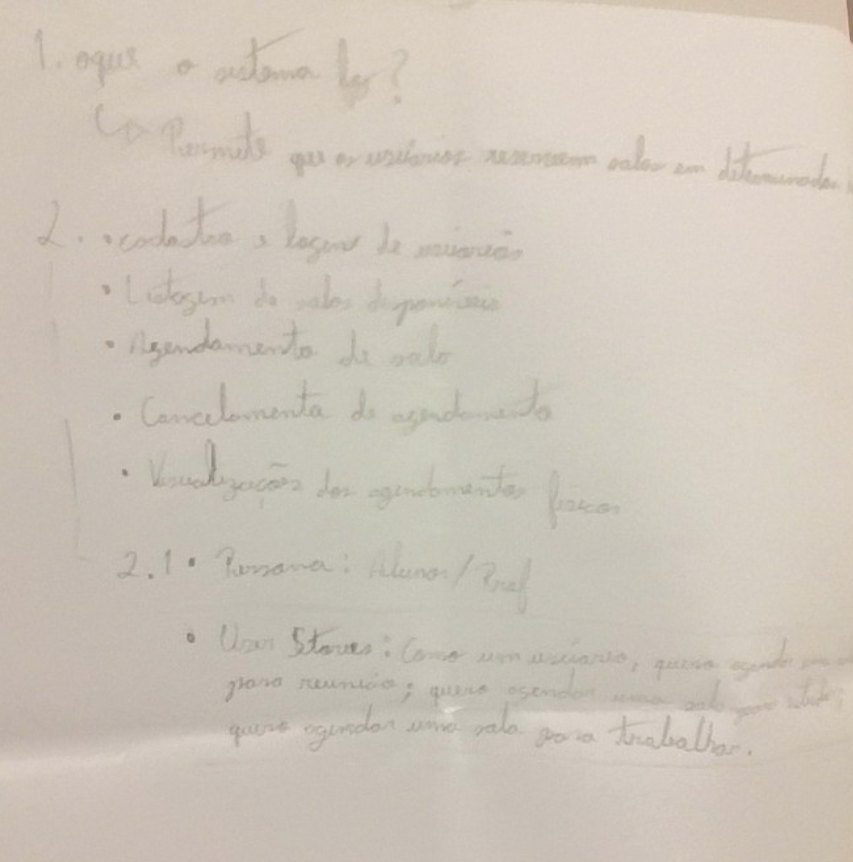 1. oque o sistema faz?
↳ Permite que os usuários reservem salas em determinados
2. • cadastro e login de usuário
• Listagem de salas disponíveis
• Agendamento de sala
• Cancelamento de agendamento
• Visualização dos agendamentos
2.1 • Persona: Aluno/Prof
• User Stories: Como um usuário, quero agendar uma
para reunião; quero agendar uma sala para
quero agendar uma sala para trabalhar.